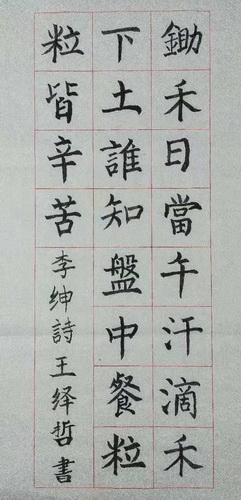 鋤禾日當午汗滴禾
下土誰知盤中餐粒
粒皆辛苦李绅詩王绎哲書